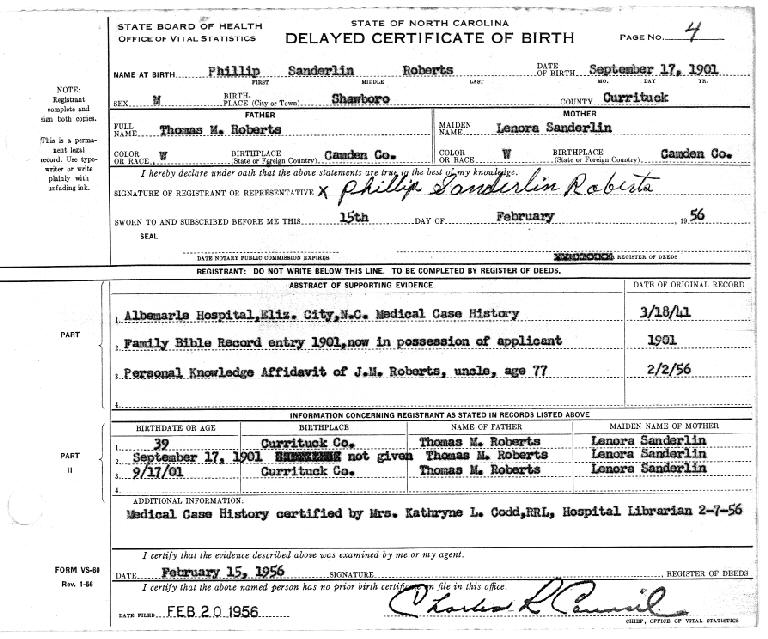 STATE BOARD OF HEALTH
OFFICE OF VITAL STATISTICS
STATE OF NORTH CAROLINA
DELAYED CERTIFICATE OF BIRTH
PAGE NO. 4
NOTE:
Registrant
complete and
sign both copies.
This is a perma-
nent legal
record. Use type-
writer or write
plainly with
unfading ink.
NAME AT BIRTH Phillip Sanderlin Roberts DATE OF BIRTH September 17, 1901
FIRST MIDDLE LAST MO. DAY YR.
SEX M BIRTH PLACE (City or Town) Shawboro COUNTY Currituck
FATHER MOTHER
FULL NAME Thomas M. Roberts MAIDEN NAME Lenora Sanderlin
COLOR OR RACE W BIRTHPLACE (State or Foreign Country) Camden Co. COLOR OR RACE W BIRTHPLACE (State or Foreign Country) Camden Co.
I hereby declare under oath that the above statements are true to the best of my knowledge.
SIGNATURE OF REGISTRANT OR REPRESENTATIVE X Phillip Sanderlin Roberts
SWORN TO AND SUBSCRIBED BEFORE ME THIS 15th DAY OF February, 1956
SEAL
DATE NOTARY PUBLIC COMMISSION EXPIRES REGISTER OF DEEDS
REGISTRANT: DO NOT WRITE BELOW THIS LINE. TO BE COMPLETED BY REGISTER OF DEEDS.
ABSTRACT OF SUPPORTING EVIDENCE DATE OF ORIGINAL RECORD
PART
1. Albemarle Hospital,Eliz. City,N.C. Medical Case History 3/18/41
2. Family Bible Record entry 1901,now in possession of applicant 1901
3. Personal Knowledge Affidavit of J.M. Roberts, uncle, age 77 2/2/56
4.
INFORMATION CONCERNING REGISTRANT AS STATED IN RECORDS LISTED ABOVE
BIRTHDATE OR AGE BIRTHPLACE NAME OF FATHER MAIDEN NAME OF MOTHER
PART
II
1. 39 Currituck Co. Thomas M. Roberts Lenora Sanderlin
2. September 17, 1901 not given Thomas M. Roberts Lenora Sanderlin
3. 9/17/01 Currituck Co. Thomas M. Roberts Lenora Sanderlin
4.
ADDITIONAL INFORMATION:
Medical Case History certified by Mrs. Kathryne L. Codd,RRL, Hospital Librarian 2-7-56
I certify that the evidence described above was examined by me or my agent.
FORM VS-60
Rev. 1-56
DATE February 15, 1956 SIGNATURE REGISTER OF DEEDS
I certify that the above named person has no prior birth certificate on file in this office.
DATE FILED FEB 20 1956 Charles L Council
CHIEF, OFFICE OF VITAL STATISTICS